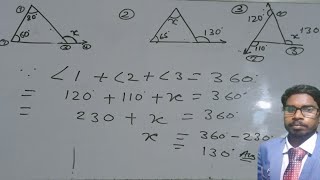 ① ② ③
80° 60° x
x 60° 130°
120° 110° x 130
∵ ∠1 + ∠2 + ∠3 = 360°
= 120° + 110° + x = 360°
= 230 + x = 360°
x = 360° - 230°
= 130° Ans